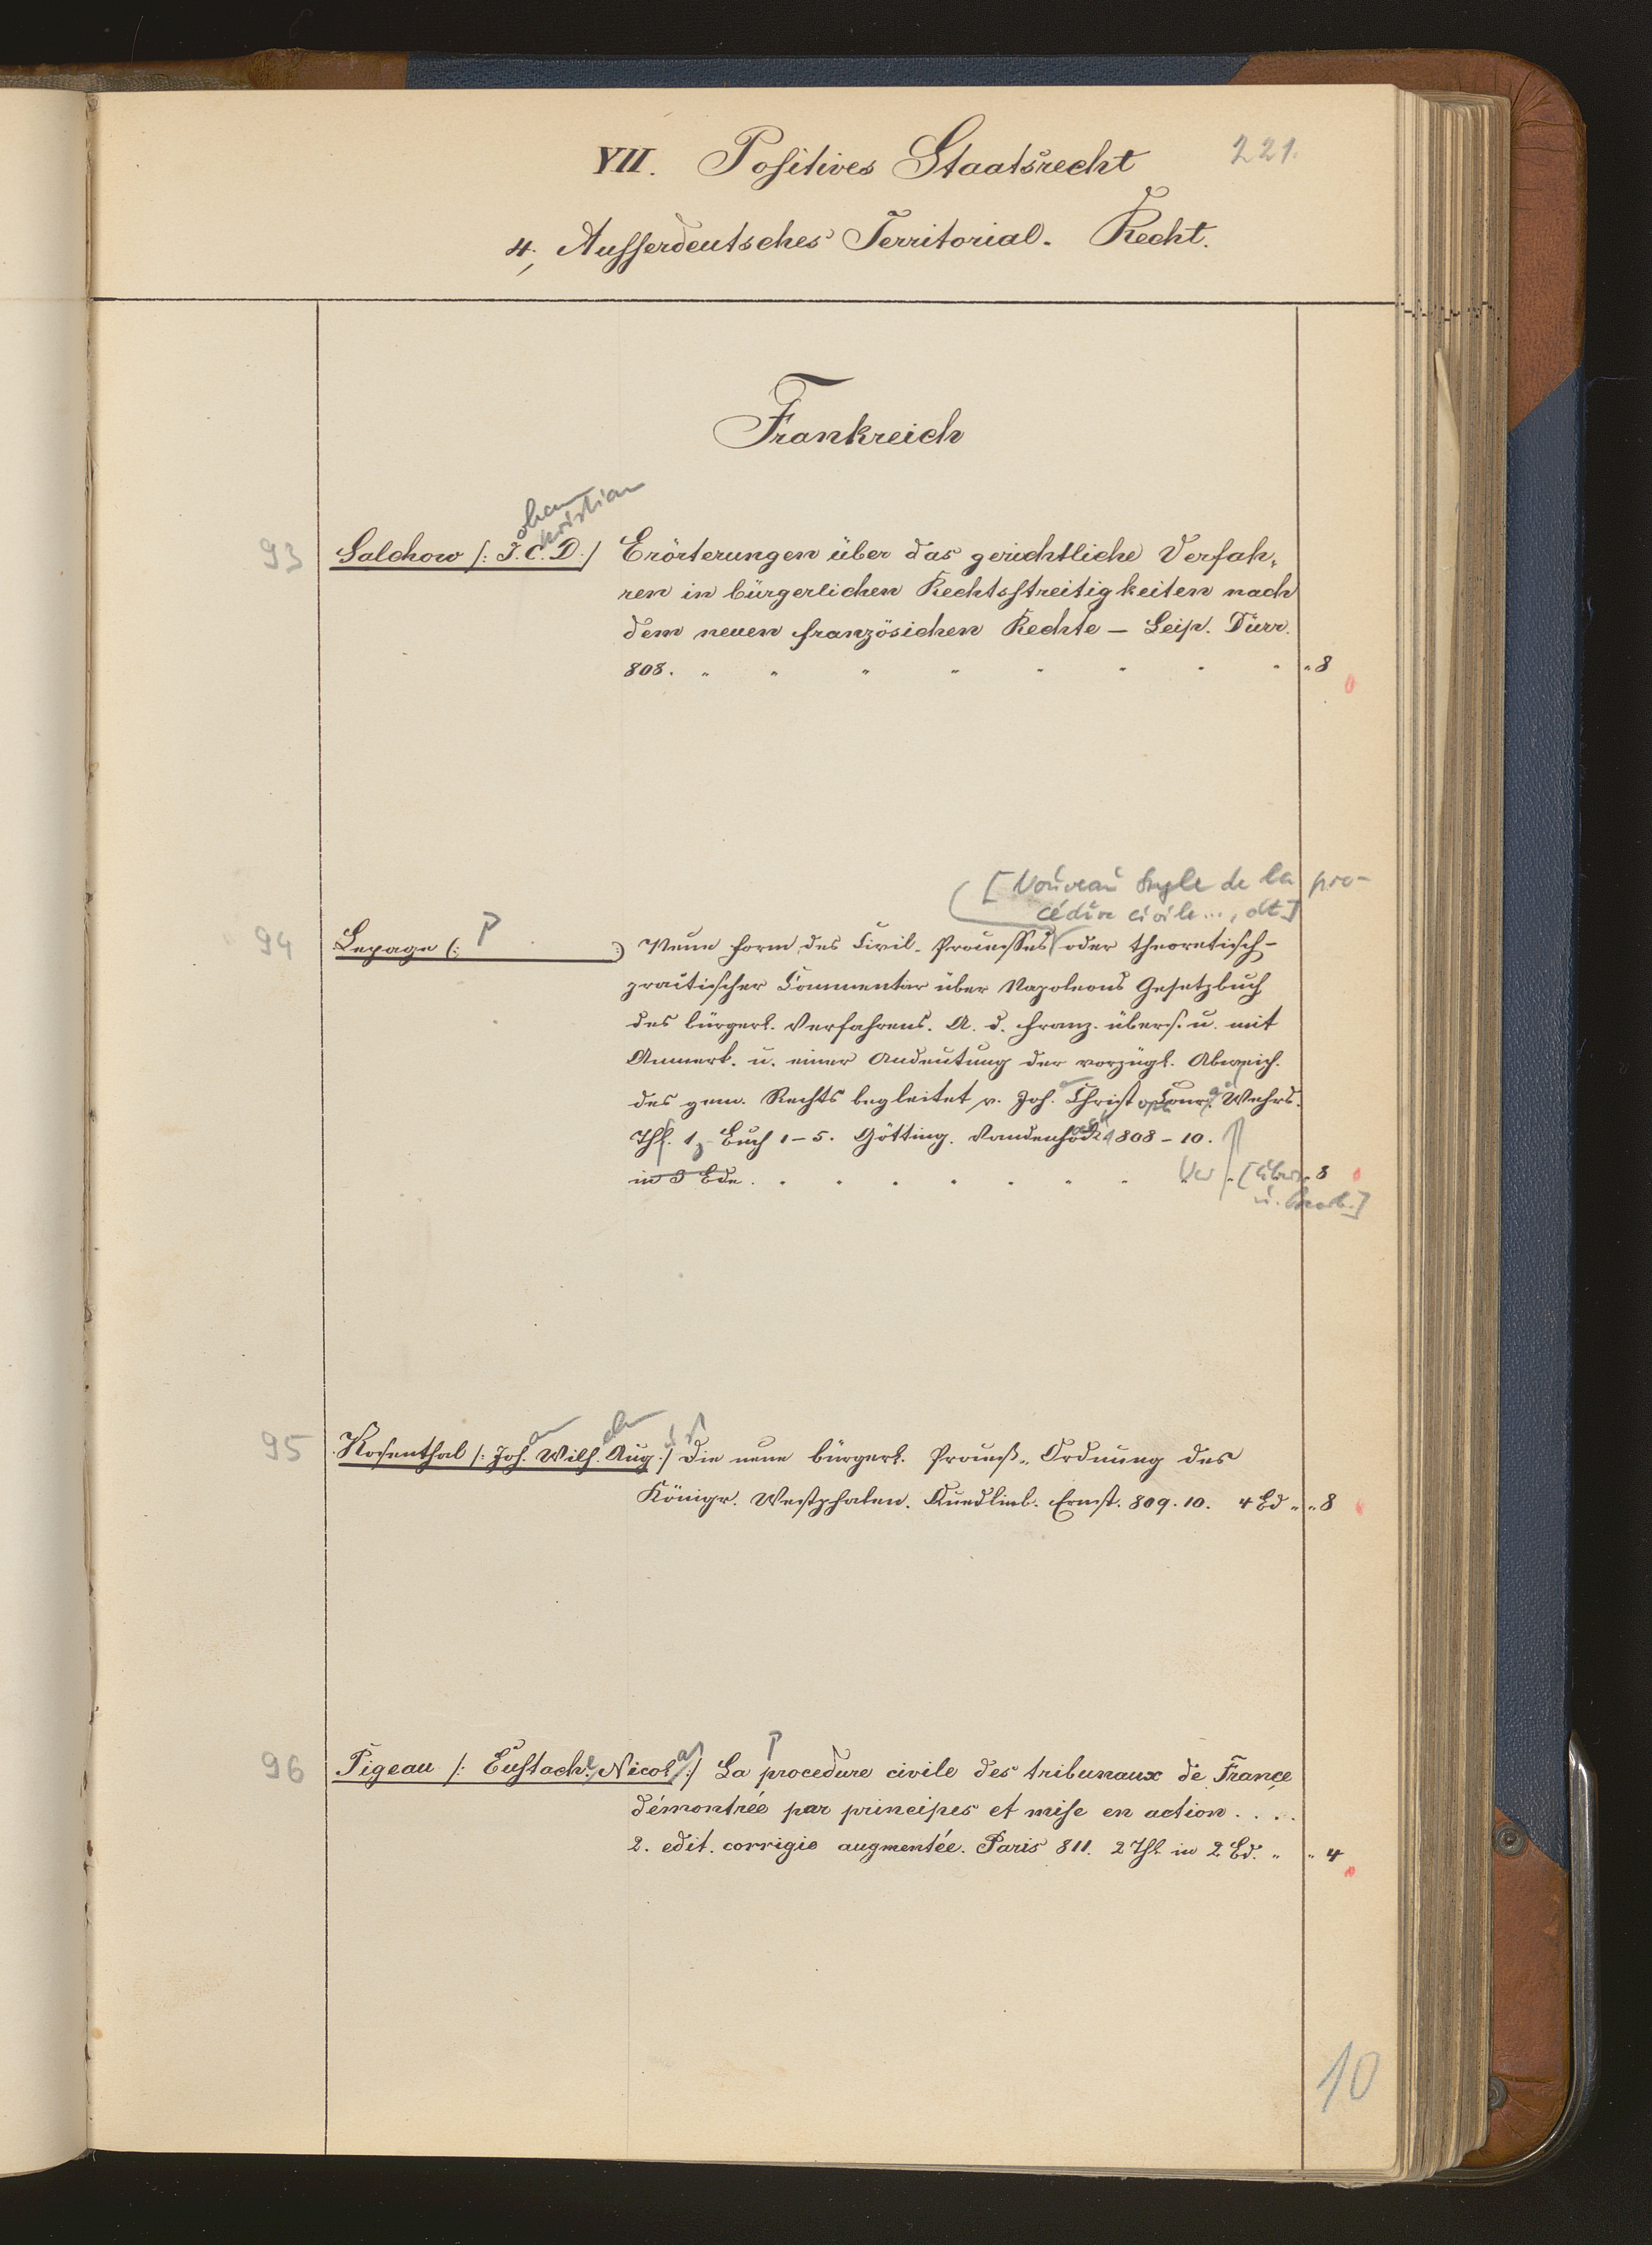 VII. Positives Staatsrecht 221.
4, Ausserdeutsches Territorial-Recht.
Frankreich
ohann
hristian
93 Salchow /: J. C. D :/ Erörterungen über das gerichtliche Verfah-
ren in bürgerlichen Rechtsstreitigkeiten nach
dem neuen französichen Rechte – Leip. Dürr.
808. " " " " " " " " " 8
[Nouveau Style de la pro-
cédure civile..., dt.]
94 Lepage (: P :) Neue Form des Civil-Processes oder theoretisch-
practischer Commentar über Napoleons Gesetzbuch
des bürgerl. Verfahrens. A. d. Franz. übers. u. mit
Anmerk. u. einer Andeutung der vorzügl. Abweich.
des gem. Rechts begleitet v. Joh. Christoph Conr. Wehrs.
Thl. 1, Buch 1–5. Götting. Vandenhöck 808–10.
in 3 Bde. . . . . . " " [übers. 8
u. bearb.]
95 Rosenthal /: Joh. Wilh. Aug :/ Die neue bürgerl. Proceß-Ordnung des
Königr. Westphalen. Quedlinb. Ernst. 809. 10. 4 Bd " " 8
P
96 Pigeau /: Eustache Nicol :/ La procedure civile des tribunaux de France
démontrée par principes et mise en action . . . .
2. edit. corrigie augmentée. Paris 811. 2 Thl in 2 Bd. " " 4
10